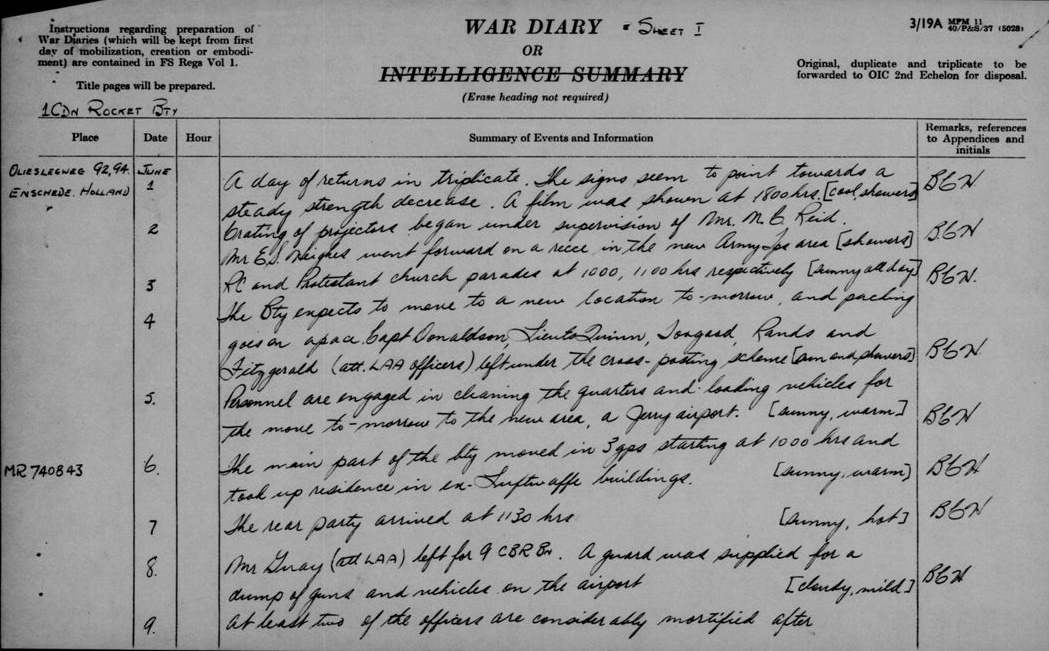 Instructions regarding preparation of
War Diaries (which will be kept from first
day of mobilization, creation or embodi-
ment) are contained in FS Regs Vol 1.
Title pages will be prepared.
1 CDN ROCKET BTY
WAR DIARY SHEET I
OR
INTELLIGENCE SUMMARY
(Erase heading not required)
3/19A MFM 11
40/P&S/37 (5028)
Original, duplicate and triplicate to be
forwarded to OIC 2nd Echelon for disposal.
Place Date Hour Summary of Events and Information Remarks, references
to Appendices and
initials
92,94. JUNE
ENSCHEDE. HOLLAND 1 A day of returns in triplicate. The signs seem to point towards a
steady strength decrease. A film was shown at 1800 hrs. [cool, showers]
2 Crating of projectors began under supervision of Mr. M. C. Reid.
Mr E.S. went forward on a recce in the new Army area [showers]
3 RC and Protestant church parades at 1000, 1100 hrs respectively [sunny all day]
4 The Bty expects to move to a new location to-morrow, and packing
goes on apace. Capt Donaldson, Lieuts Quinn, Rands and
Fitzgerald (att. LAA officers) left under the cross-posting scheme [sun and showers]
5. Personnel are engaged in cleaning the quarters and loading vehicles for
the move to-morrow to the new area, a Jerry airport. [sunny, warm]
MR 740843 6. The main part of the bty moved in 3 gps starting at 1000 hrs and
took up residence in ex-Luftwaffe buildings. [sunny, warm]
7 The rear party arrived at 1130 hrs [sunny, hot]
8. Mr (att LAA) left for 9 CBR Bn. A guard was supplied for a
dump of guns and vehicles on the airport [cloudy, mild]
9. At least two of the officers are considerably mortified after